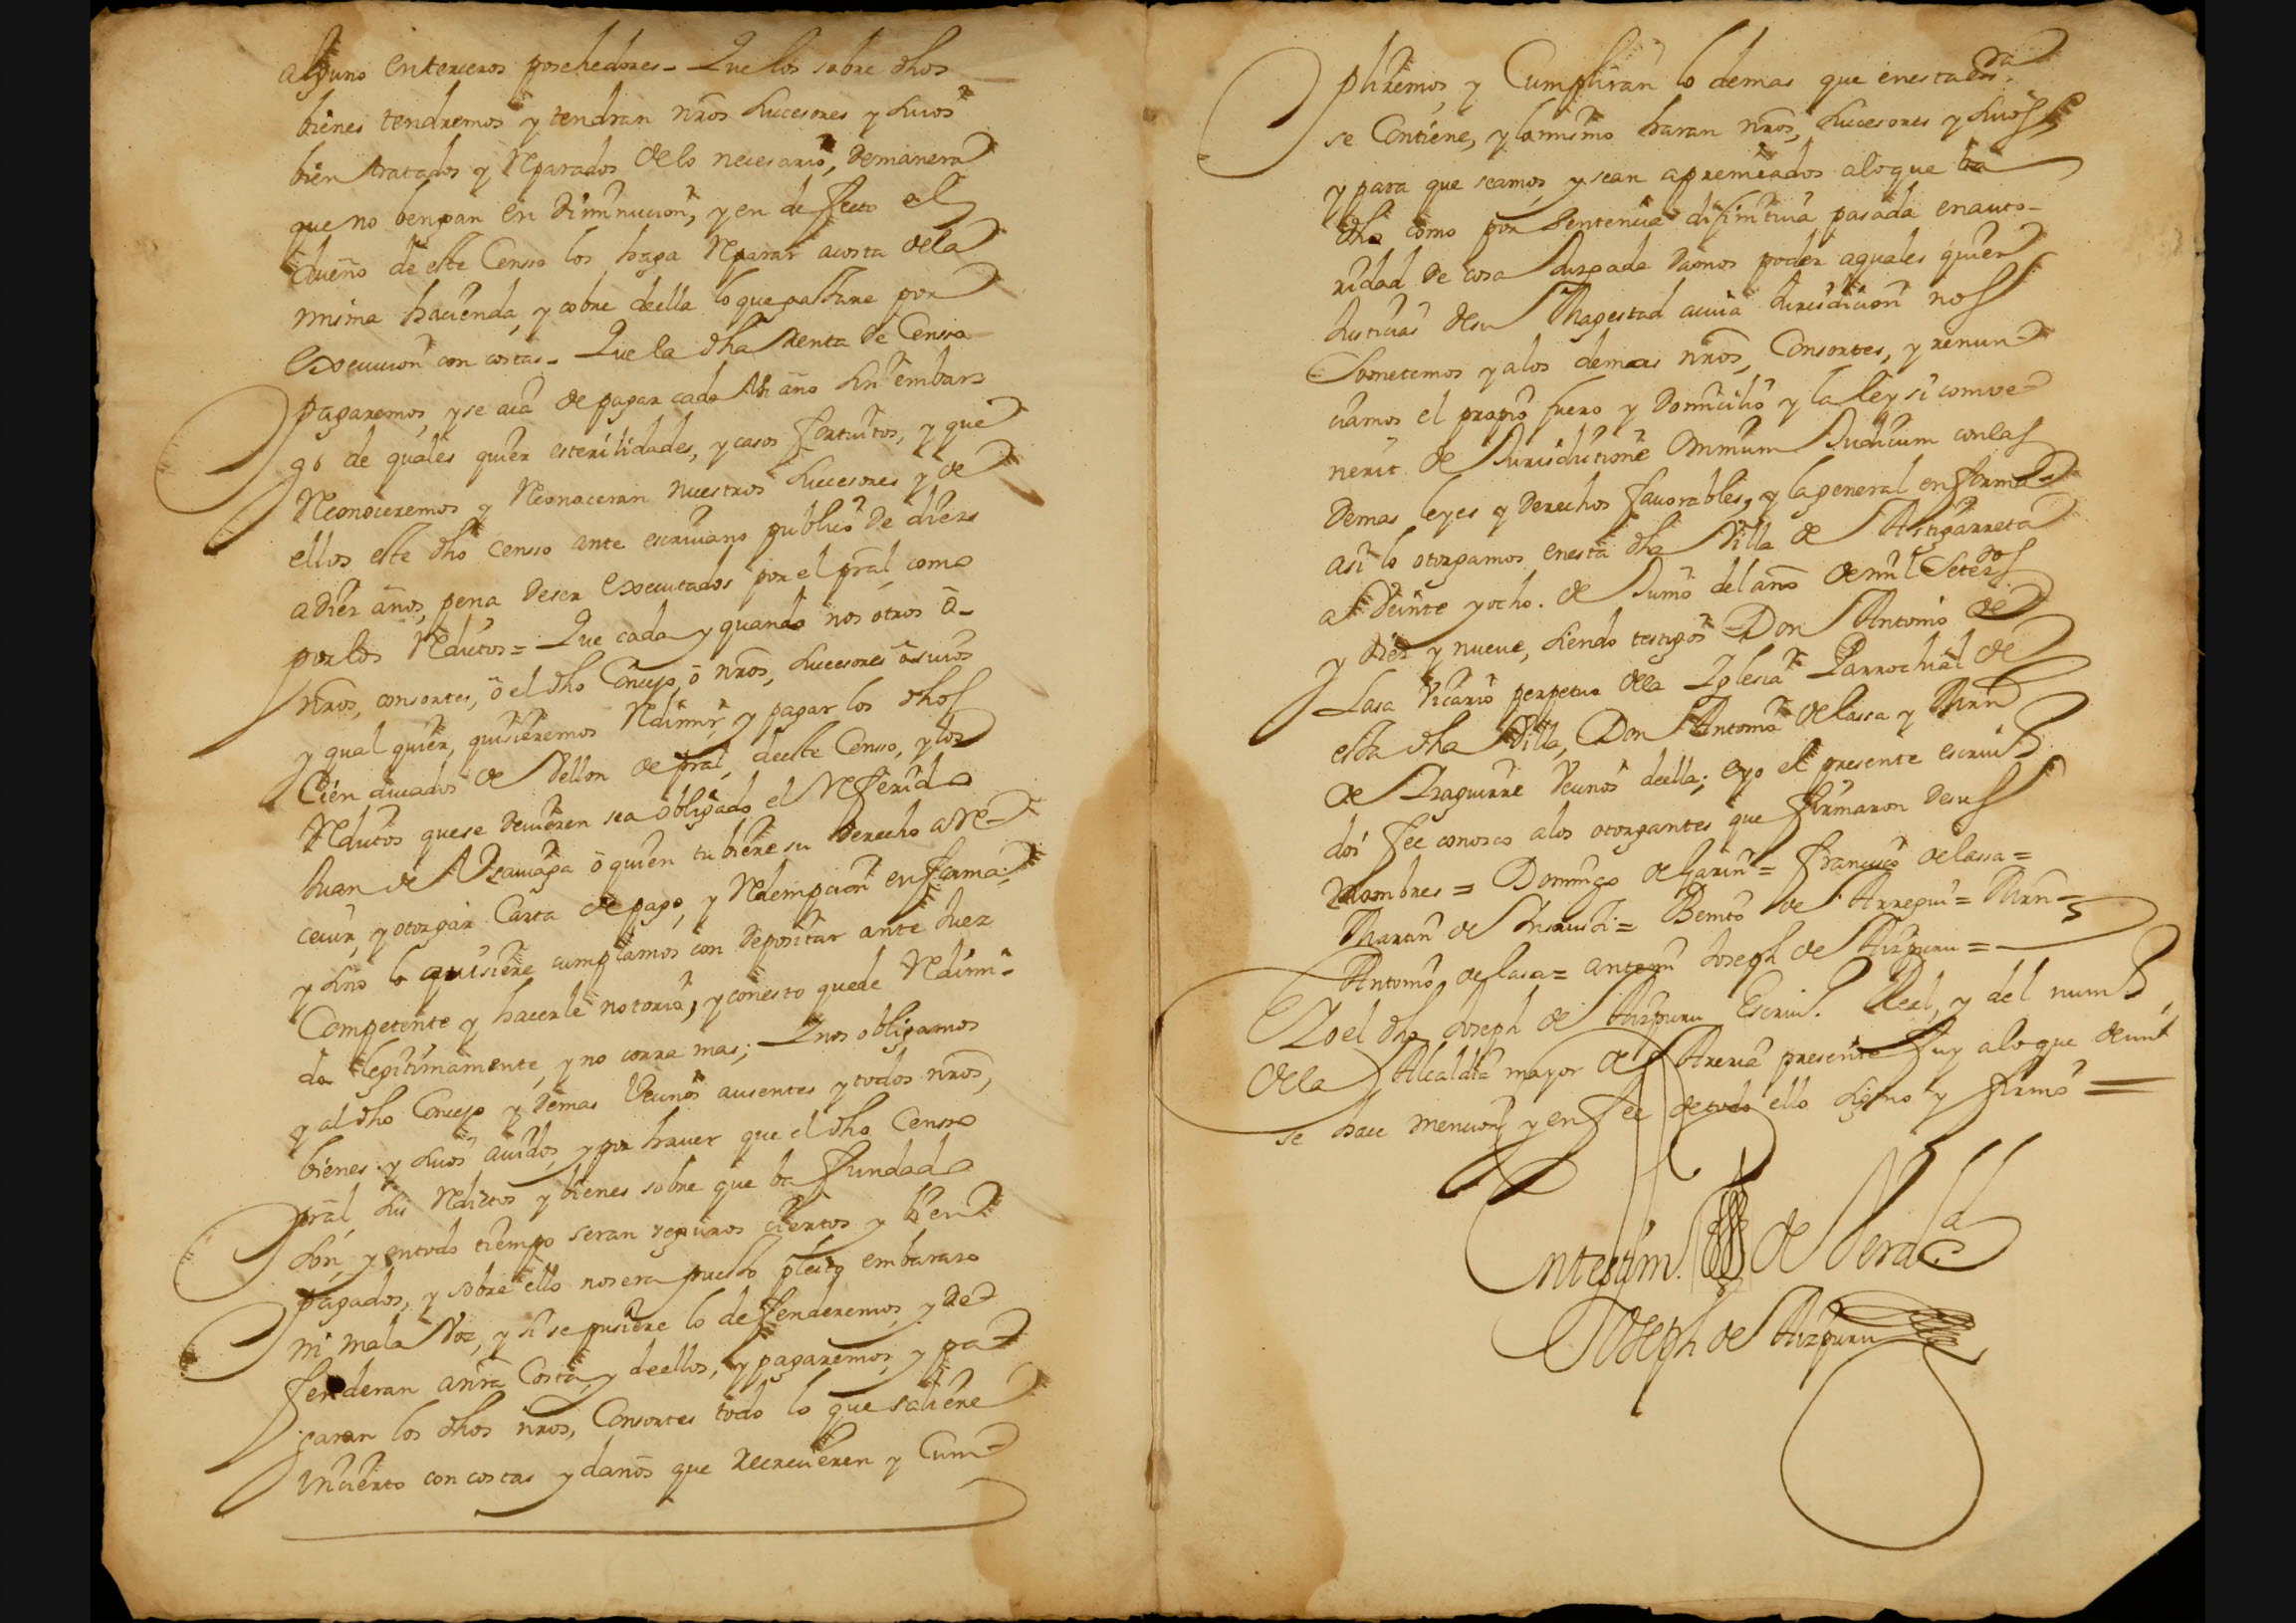 alguno enterceros poschedores - Que los sobre dhos
bienes tendremos y tendran nros Subcesores y Suios
bien tratados y Reparados de lo necesario, demanera
que no bengan en Diminucion, y en deffecto el
dueño de este Censo los haga Reparar acosta dela
misma hacienda, y cobre deella lo que gastare por
execucion con costas - Que la dha Renta de Censo
pagaremos, y se aia de pagar cada Un año Sin embar
go de quales quier esterilidades, y casos fortuitos, y que
Reconoceremos y Reconoceran nuestros Succesores y de
ellos este dho Censso ante escrivano publico de diez
a Diez años, pena de ser executados por el pral, como
por los Reditos = Que cada y quando nos otros ó
nros, consortes, ó el dho Concejo, ó nros, Succesores ó suios
y qual quier, quisieremos Redimir, y pagar los dhos
Cien ducados de Vellon de pral, deeste Censo, y los
Reditos que se Devieren sea obligado el Referido
Juan de ó quien tubiere su Derecho a Re-
cevir, y otorgar Carta de pago, y Redempcion en forma;
y Sino lo quisiere cumplamos con Depositar ante Juez
Competente y hacerle notorio, y con esto quede Redimi-
do legitimamente, y no corra mas; Y nos obligamos
y al dho Concejo y Demas Vecinos ausentes y todos nros,
bienes y Suios avidos, y por haver que el dho Censso
pral, Sus Reditos y bienes sobre que ba fundado
Son, y entodo tiempo seran seguros ciertos y bien
pagados, y sobre ello no sera puesto pleito embarazo
ni mala Voz, y si se pusiere lo deffenderemos, y De
fenderan anra Costa, y deellos, y pagaremos, y pa
garan los dhos nros, Consortes todo lo que saliere
incierto con costas y daños que Recrecieren y Cum
pliremos, y Cumpliran lo demas que enesta essra
se Contiene, y lo mismo haran nros, Succesores y Suios
y para que seamos, y sean apremiados alo que ba
dho como por Sentencia difinitiva pasada en auto-
ridad de cosa Juzgada Damos poder aquales quier
Justicias de su Magestad a cuia Jurisdicion nos
Sometemos y alos demas nros, Consortes, y renun
ciamos el propio fuero y Domicilio y la ley si conve
nerit de Jurisdictione Omnium Judicum con las
Demas leyes y Derechos favorables, y la general en forma
asi lo otorgamos enesta dha Villa de Astigarreta
a Veinte y ocho de Junio del año de mil Setezos
y Diez y nueve, siendo testigos Don Antonio de
Lasa Vicario perpetuo dela Iglesia Parrochial de
esta dha Villa, Don Antonio de lassa y Mrn
de Vecinos deella; e yo el presente escrivo
doi fee conosco alos otorgantes que firmaron de sus
Nombres = Domingo de Garin = Francisco de lassa =
Martin de = Benito de Arregui = Mrn
Antonio de lasa = antemi Joseph de Aizpuru =
Yo el dho Joseph de Aizpuru Escrivo Real, y del numo
dela Alcaldia mayor de Areria presente fuy alo que de mi
se hace mencion, y en fee de todo ello Signo y firmo =
En testimo de Verdad
Joseph de Aizpuru